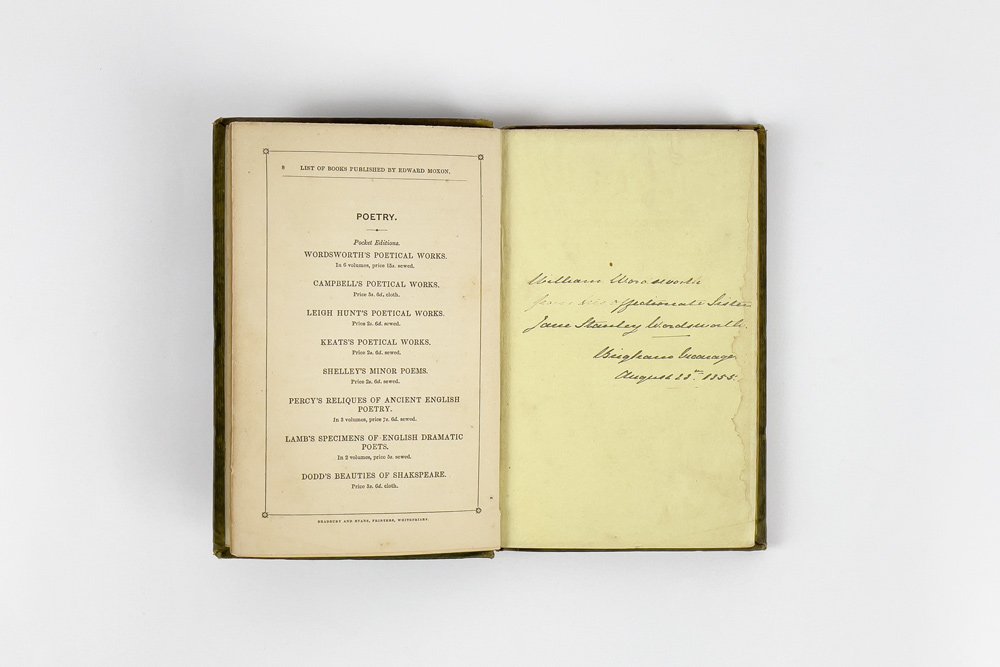 8 LIST OF BOOKS PUBLISHED BY EDWARD MOXON.
POETRY.
Pocket Editions.
WORDSWORTH'S POETICAL WORKS.
In 6 volumes, price 15s. sewed.
CAMPBELL'S POETICAL WORKS.
Price 3s. 6d. cloth.
LEIGH HUNT'S POETICAL WORKS.
Price 2s. 6d. sewed.
KEATS'S POETICAL WORKS.
Price 2s. 6d. sewed.
SHELLEY'S MINOR POEMS.
Price 2s. 6d. sewed.
PERCY'S RELIQUES OF ANCIENT ENGLISH
POETRY.
In 3 volumes, price 7s. 6d. sewed.
LAMB'S SPECIMENS OF ENGLISH DRAMATIC
POETS.
In 2 volumes, price 5s. sewed.
DODD'S BEAUTIES OF SHAKSPEARE.
Price 3s. 6d. cloth.
BRADBURY AND EVANS, PRINTERS, WHITEFRIARS.
William Wordsworth
from his affectionate Sister
Jane Stanley Wordsworth.
August 23 1855.